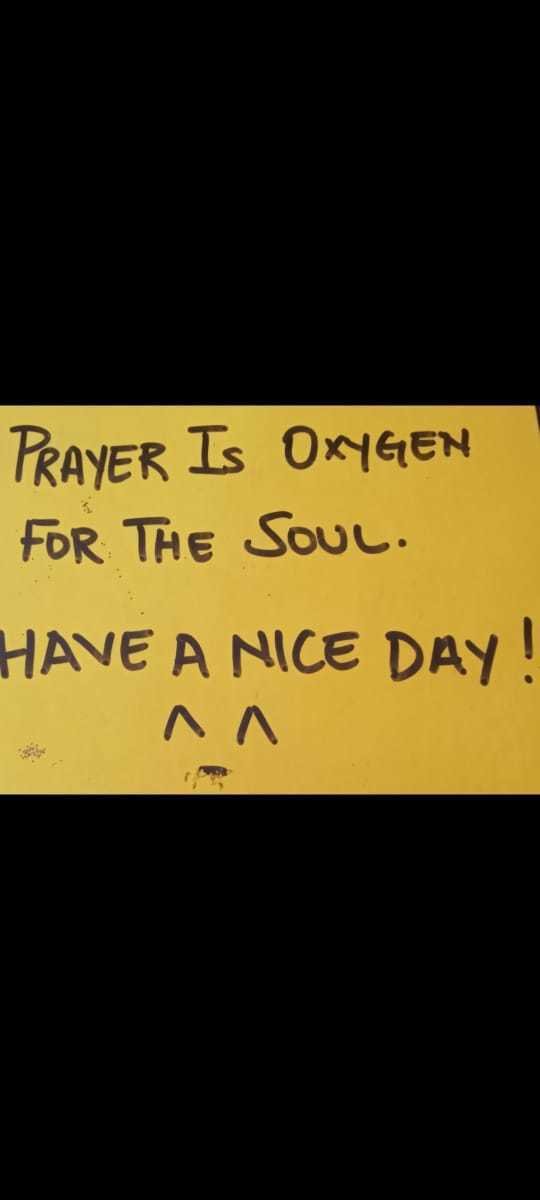 PRAYER IS OXYGEN
FOR THE SOUL.
HAVE A NICE DAY!
^ ^